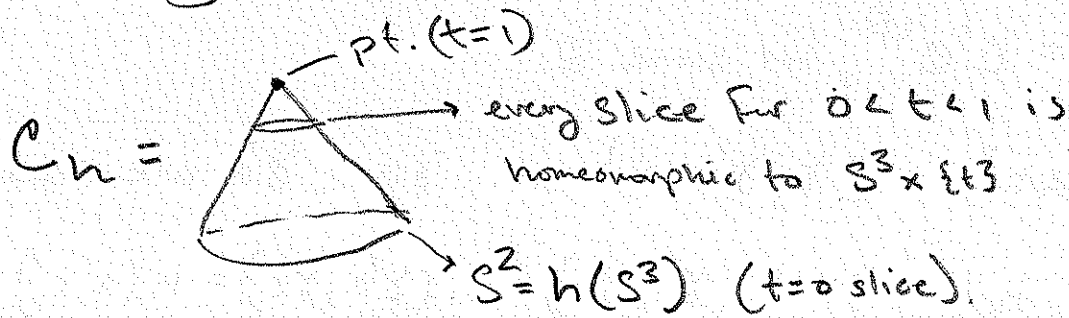 pt. (t=1)
every slice for 0<t<1 is
C_h =
homeomorphic to S³ × {t}
S² = h(S³) (t=0 slice).